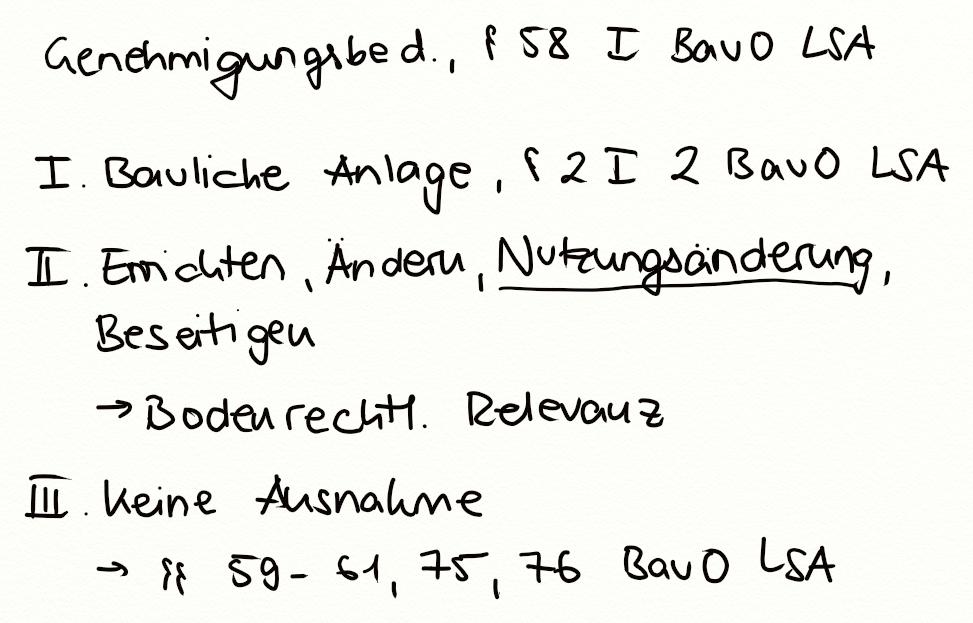 Genehmigungsbed., § 58 I BauO LSA
I. Bauliche Anlage, § 2 I 2 BauO LSA
II. Errichten, Ändern, Nutzungsänderung,
Beseitigen
→ Bodenrechtl. Relevanz
III. Keine Ausnahme
→ §§ 59 - 61, 75, 76 BauO LSA